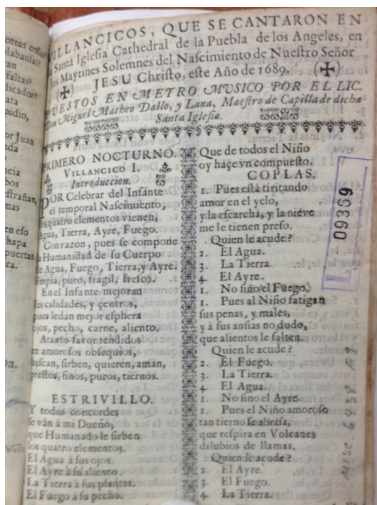 VILLANCICOS, QUE SE CANTARON EN
Santa Iglesia Cathedral de la Puebla de los Angeles, en
Maytines Solemnes del Nascimiento de Nuestro Señor
JESU Christo, este Año de 1689.
PUESTOS EN METRO MUSICO POR EL LIC.
Don Miguel Matheo Dallo, y Lana, Maestro de Capilla de dicha
Santa Iglesia.
PRIMERO NOCTURNO.
VILLANCICO I.
Introduccion.
POR Celebrar del Infante
el temporal Nascimiento,
quatro elementos vienen,
Agua, Tierra, Ayre, Fuego.
Con razon, pues se compone
la Humanidad de su Cuerpo
de Agua, Fuego, Tierra, y Ayre.
limpia, puro, fragil, fresco.
En el Infante mejoran
sus calidades, y centros,
pues les dan mejor esphera
ojos, pecho, carne, aliento.
A tanto favor rendidos
en amorosos obsequios,
buscan, sirben, quieren, aman,
prestos, finos, puros, tiernos.
ESTRIVILLO.
Y todos concordes
se vàn à mi Dueño,
que Humanado le sirben
los quatro elementos.
El Agua à sus ojos.
El Ayre à su aliento.
La Tierra à sus plantas.
El Fuego à su pecho.
Que de todos el Niño
oy haçe vn compuesto.
COPLAS.
1. Pues està tiritando
amor en el yelo,
y la escarcha, y la nieve
me le tienen preso.
Quien le acude?
2. El Agua.
3. La Tierra.
4. El Ayre.
1. No sino el Fuego.
1. Pues al Niño fatigan
sus penas, y males,
y à sus ansias no dudo,
que alientos le falten.
Quien le acude?
2. El Fuego.
3. La Tierra.
4. El Agua.
1. No sino el Ayre.
1. Pues el Niño amoroso
tan tierno se abrasa,
que respira en Volcanes
dilubios de llamas.
Quien le acude?
2. El Ayre.
3. El Fuego.
4. La Tierra.
09369